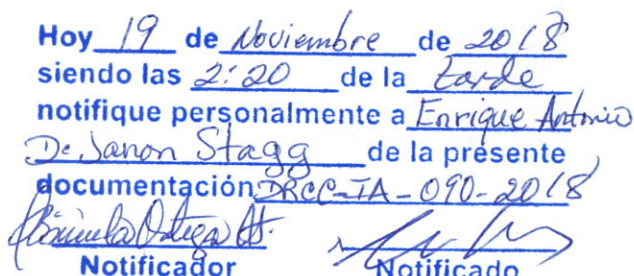 Hoy 19 de Noviembre de 2018
siendo las 2:20 de la tarde
notifique personalmente a Enrique Antonio
De Janon Stagg de la presente
documentación DRCC-IA-090-2018
Notificador Notificado